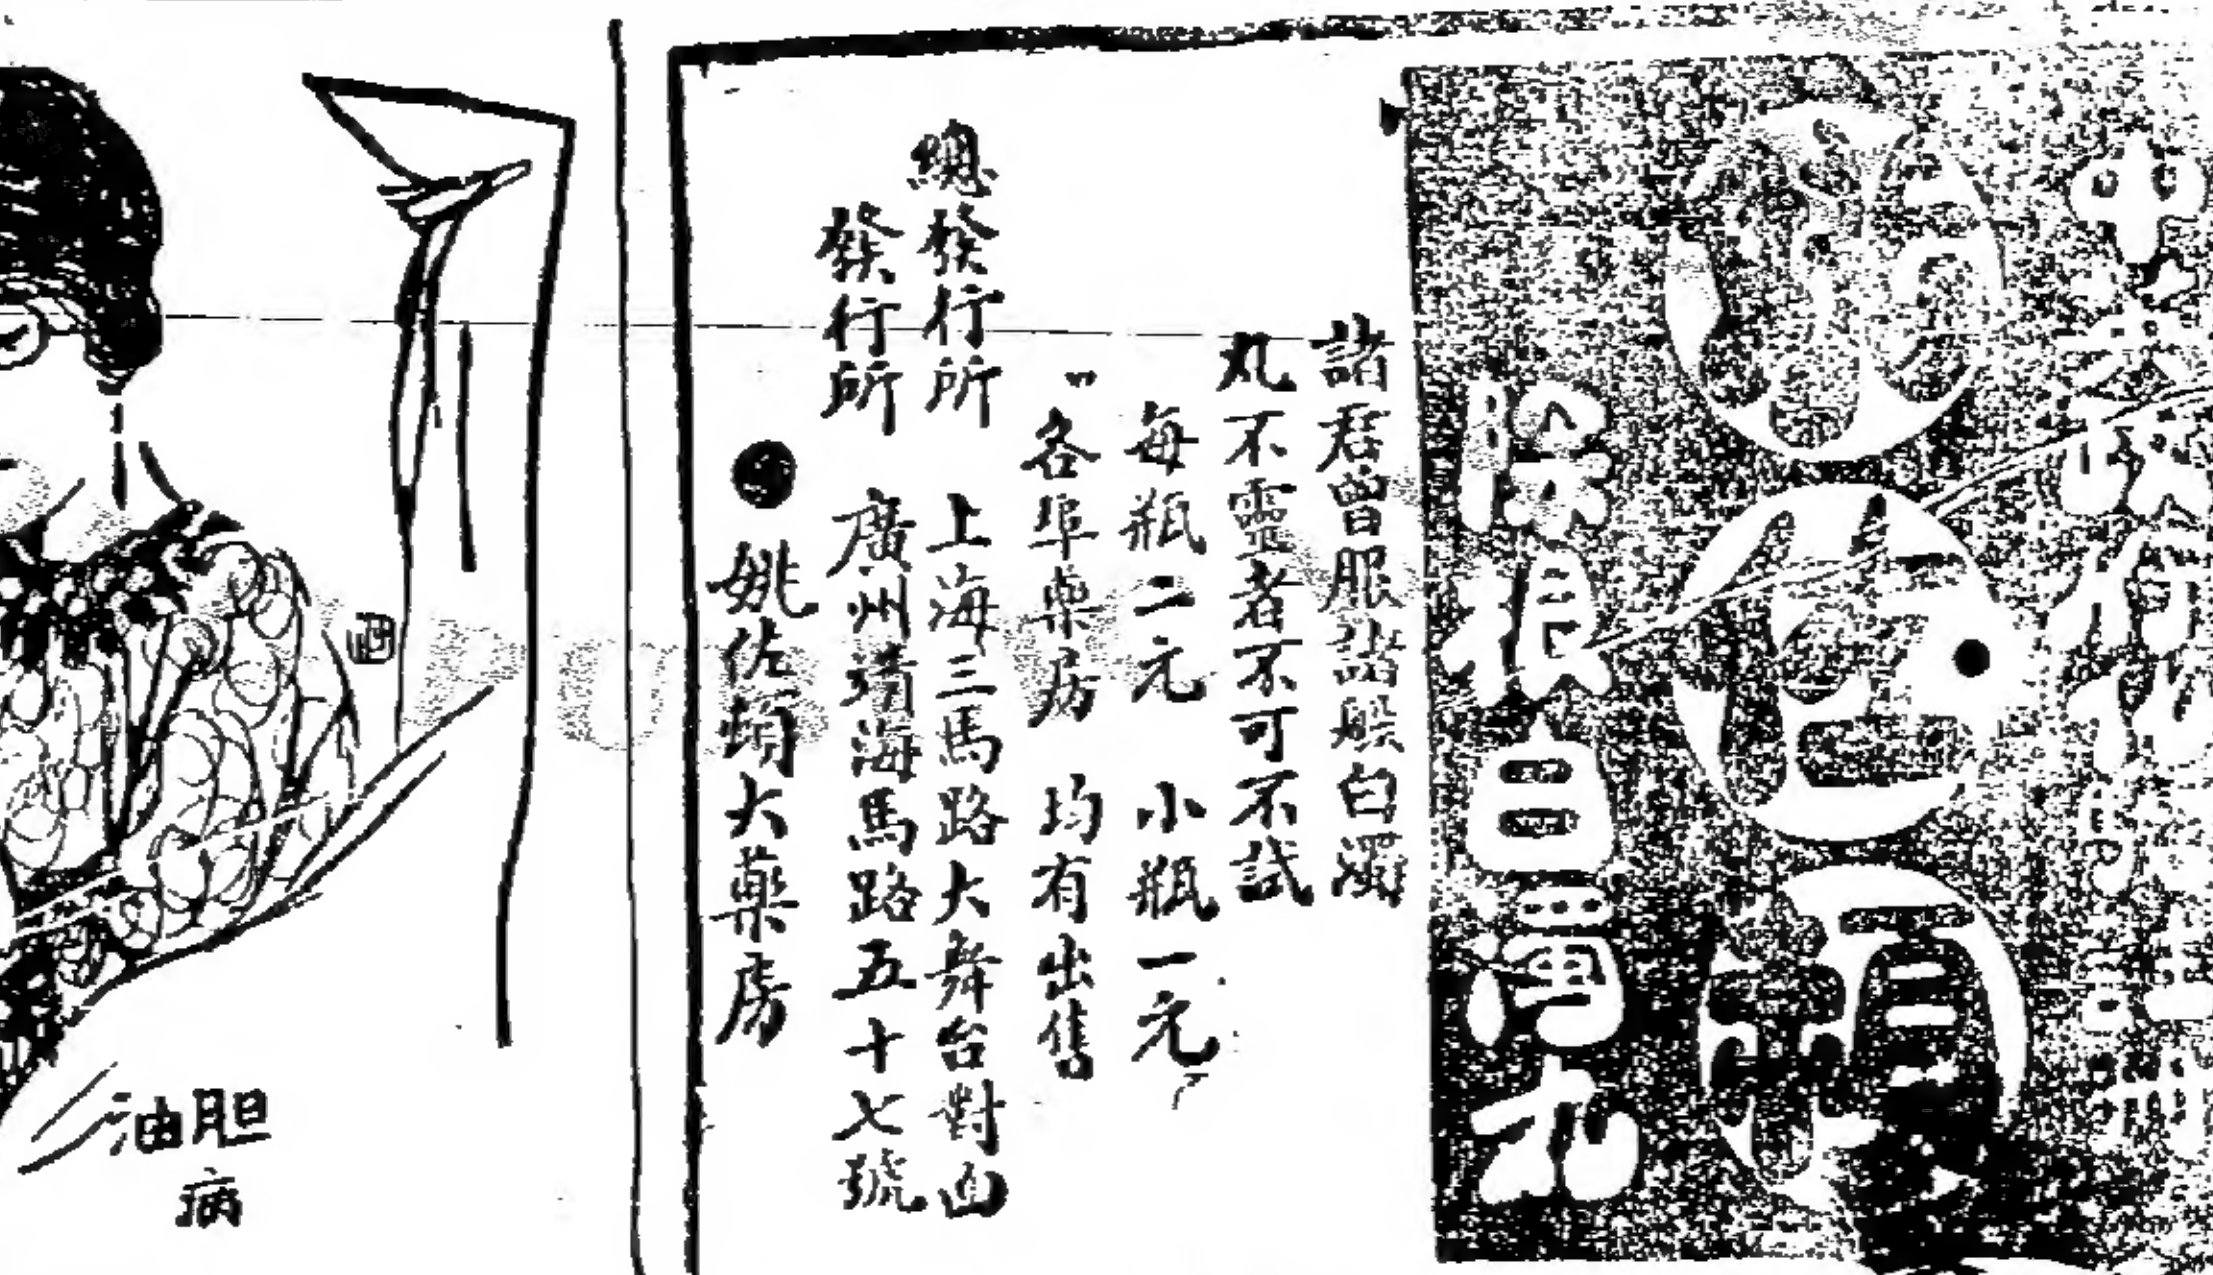 姚佐頓
除根白濁丸
諸君曾服諸般白濁
丸不靈者不可不試
每瓶二元 小瓶一元
各埠藥房 均有出售
總發行所 上海三馬路大舞台對面
發行所 廣州靖海馬路五十七號
姚佐頓大藥房
胆油
病